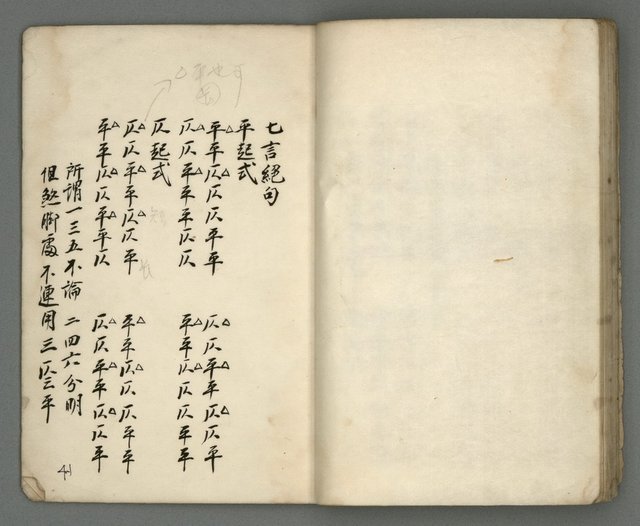 七言絕句
平起式
平△平仄△仄仄平平　仄△仄平△平仄△仄平
仄△仄平△平平仄仄　平△平仄△仄仄平平
仄起式
仄△仄平△平仄△仄平　平△平仄△仄仄平平
平△平仄△仄平平仄　仄△仄平△平仄△仄平
所謂一三五不論　二四六分明
但煞脚處不連用三仄三平
41